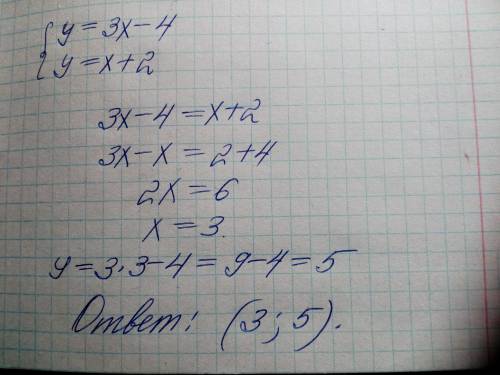 { y = 3x - 4
y = x + 2
3x - 4 = x + 2
3x - x = 2 + 4
2x = 6
x = 3.
y = 3 · 3 - 4 = 9 - 4 = 5
Ответ: (3; 5).